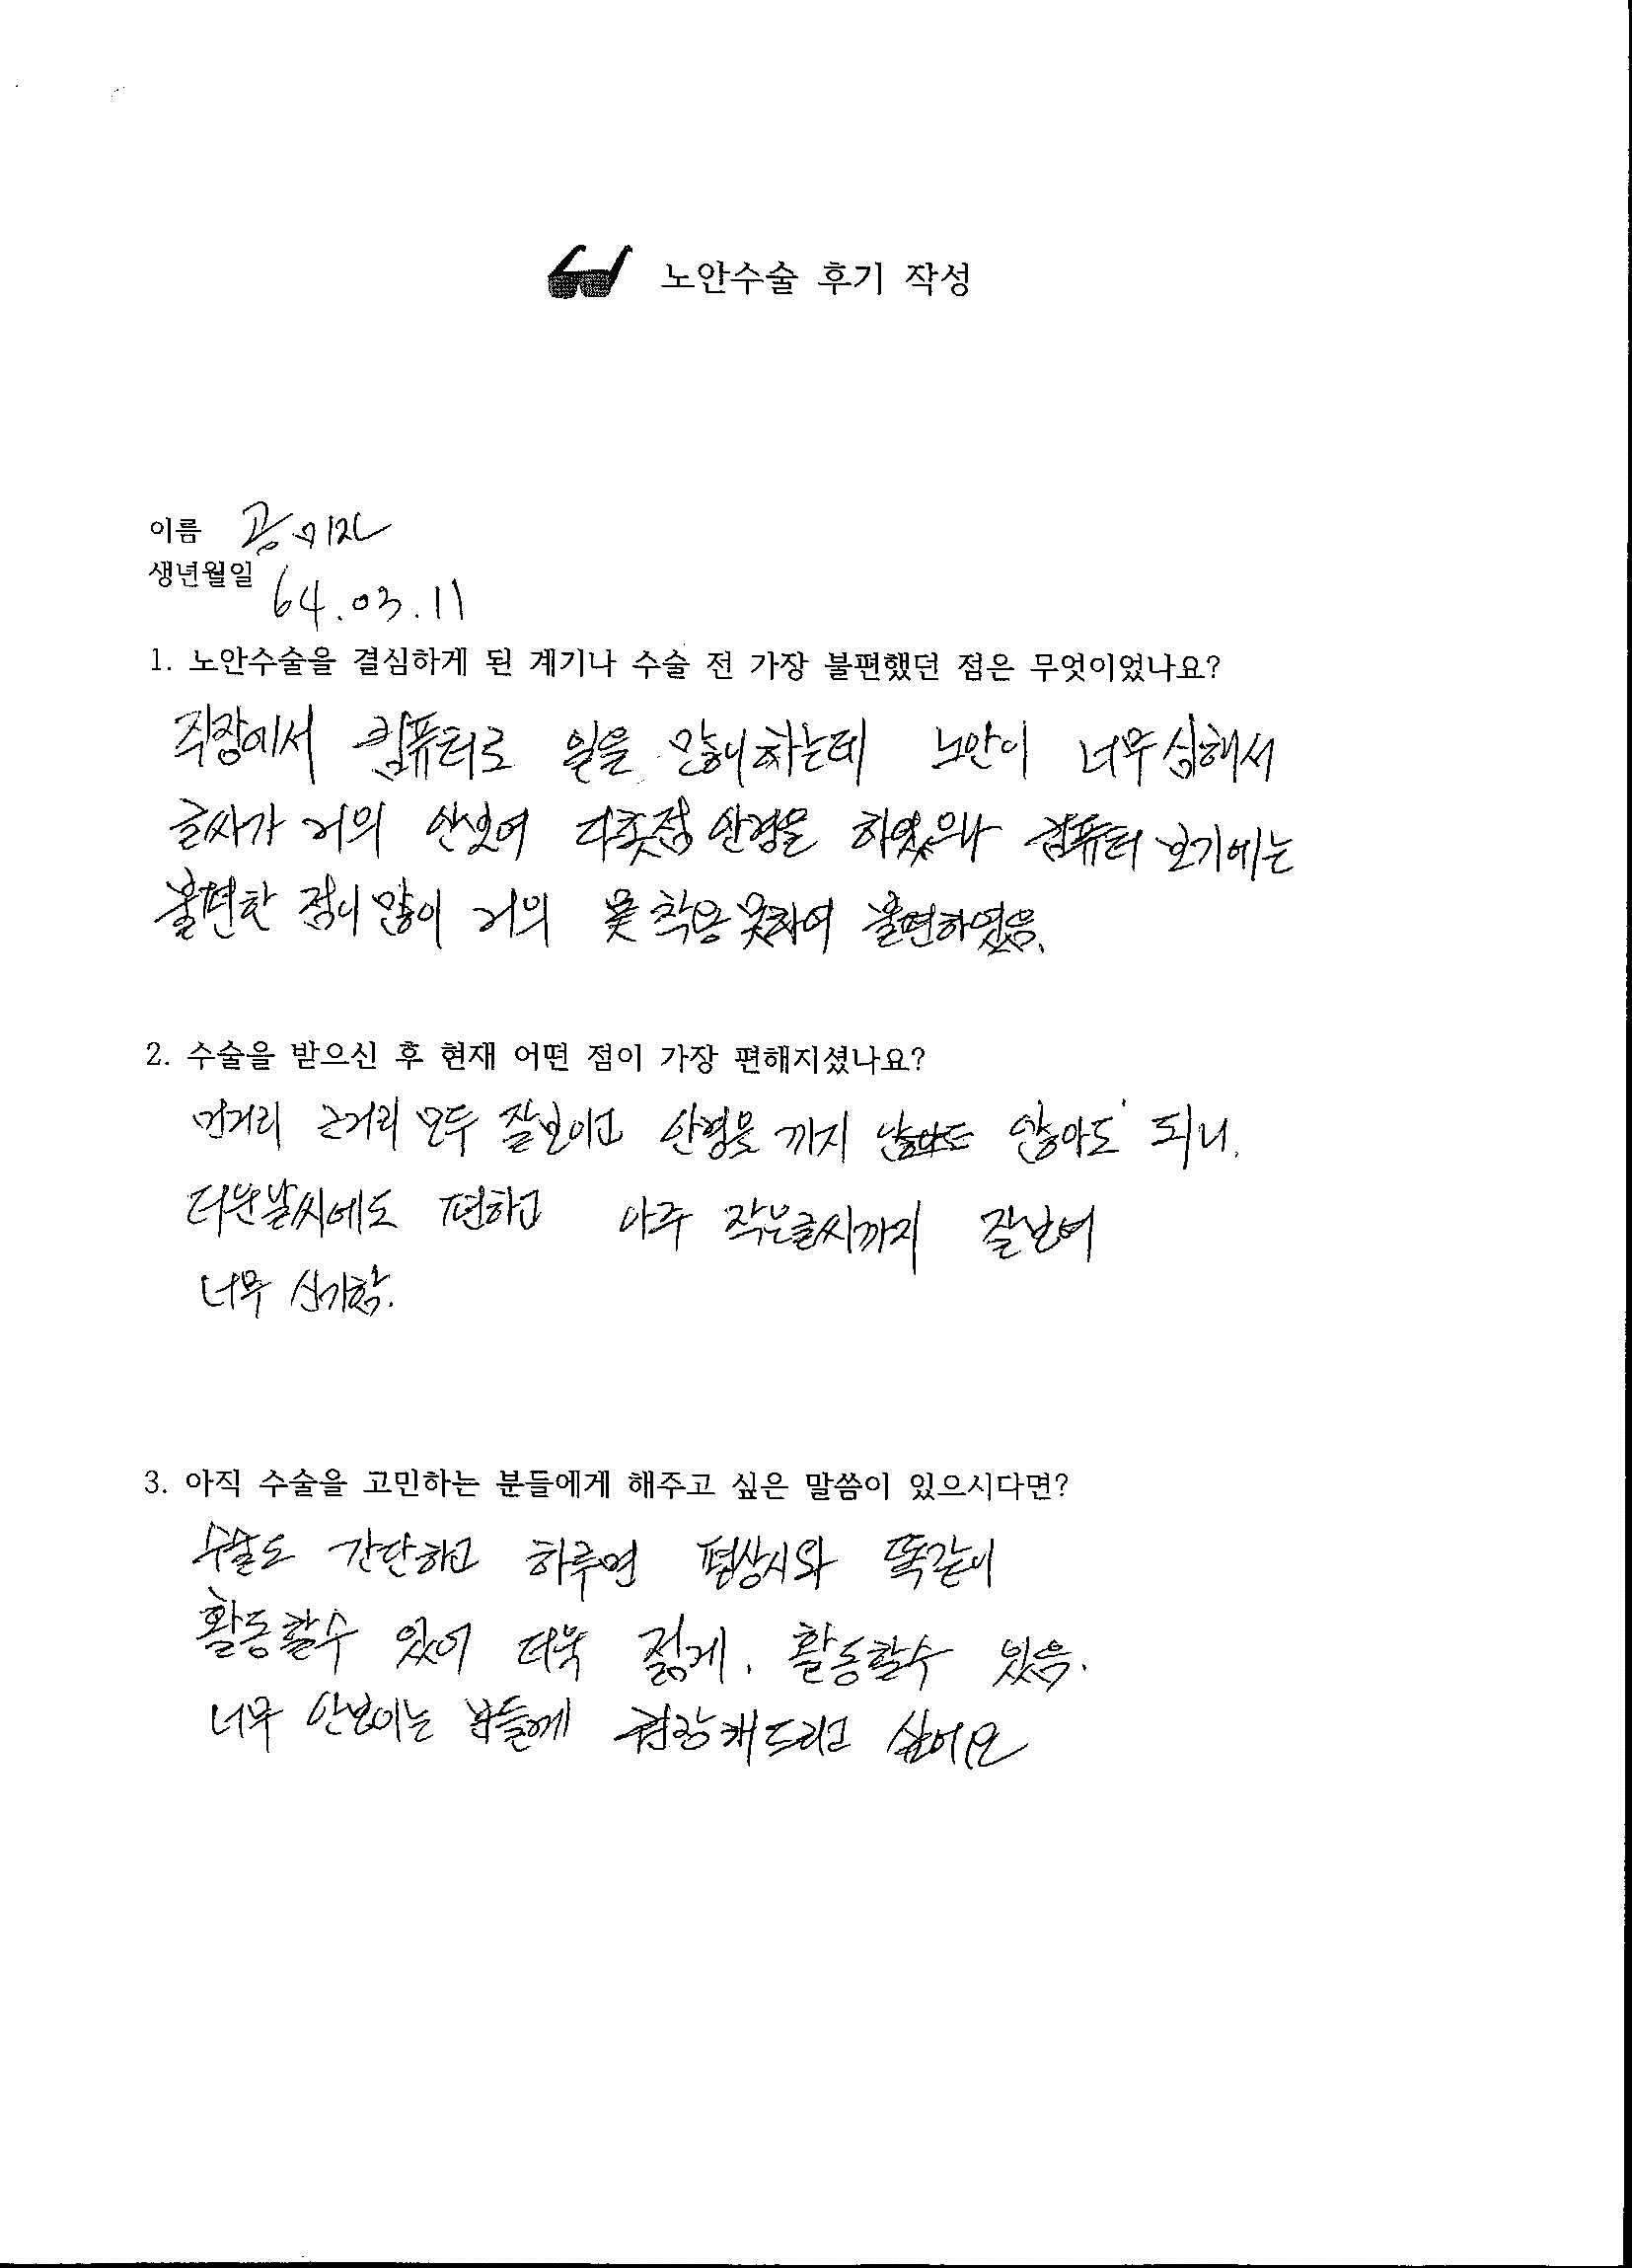 노안수술 후기 작성
이름 공미자
생년월일 64.03.11
1. 노안수술을 결심하게 된 계기나 수술 전 가장 불편했던 점은 무엇이었나요?
직장에서 컴퓨터로 일을 많이 하는데 노안이 너무 심해서
글씨가 거의 안보여 다촛점 안경을 하였으나 컴퓨터 보기에는
불편한 점이 많이 거의 못 착용 못하여 불편하였음.
2. 수술을 받으신 후 현재 어떤 점이 가장 편해지셨나요?
먼거리 근거리 모두 잘보이고 안경을 끼지 않아도 되니.
더운날씨에도 편하고 아주 작은글씨까지 잘보여
너무 신기함.
3. 아직 수술을 고민하는 분들에게 해주고 싶은 말씀이 있으시다면?
수술도 간단하고 하루면 평상시와 똑같이
활동할수 있어 더욱 젊게. 활동할수 있음.
너무 안보이는 분들께 권장해드리고 싶어요